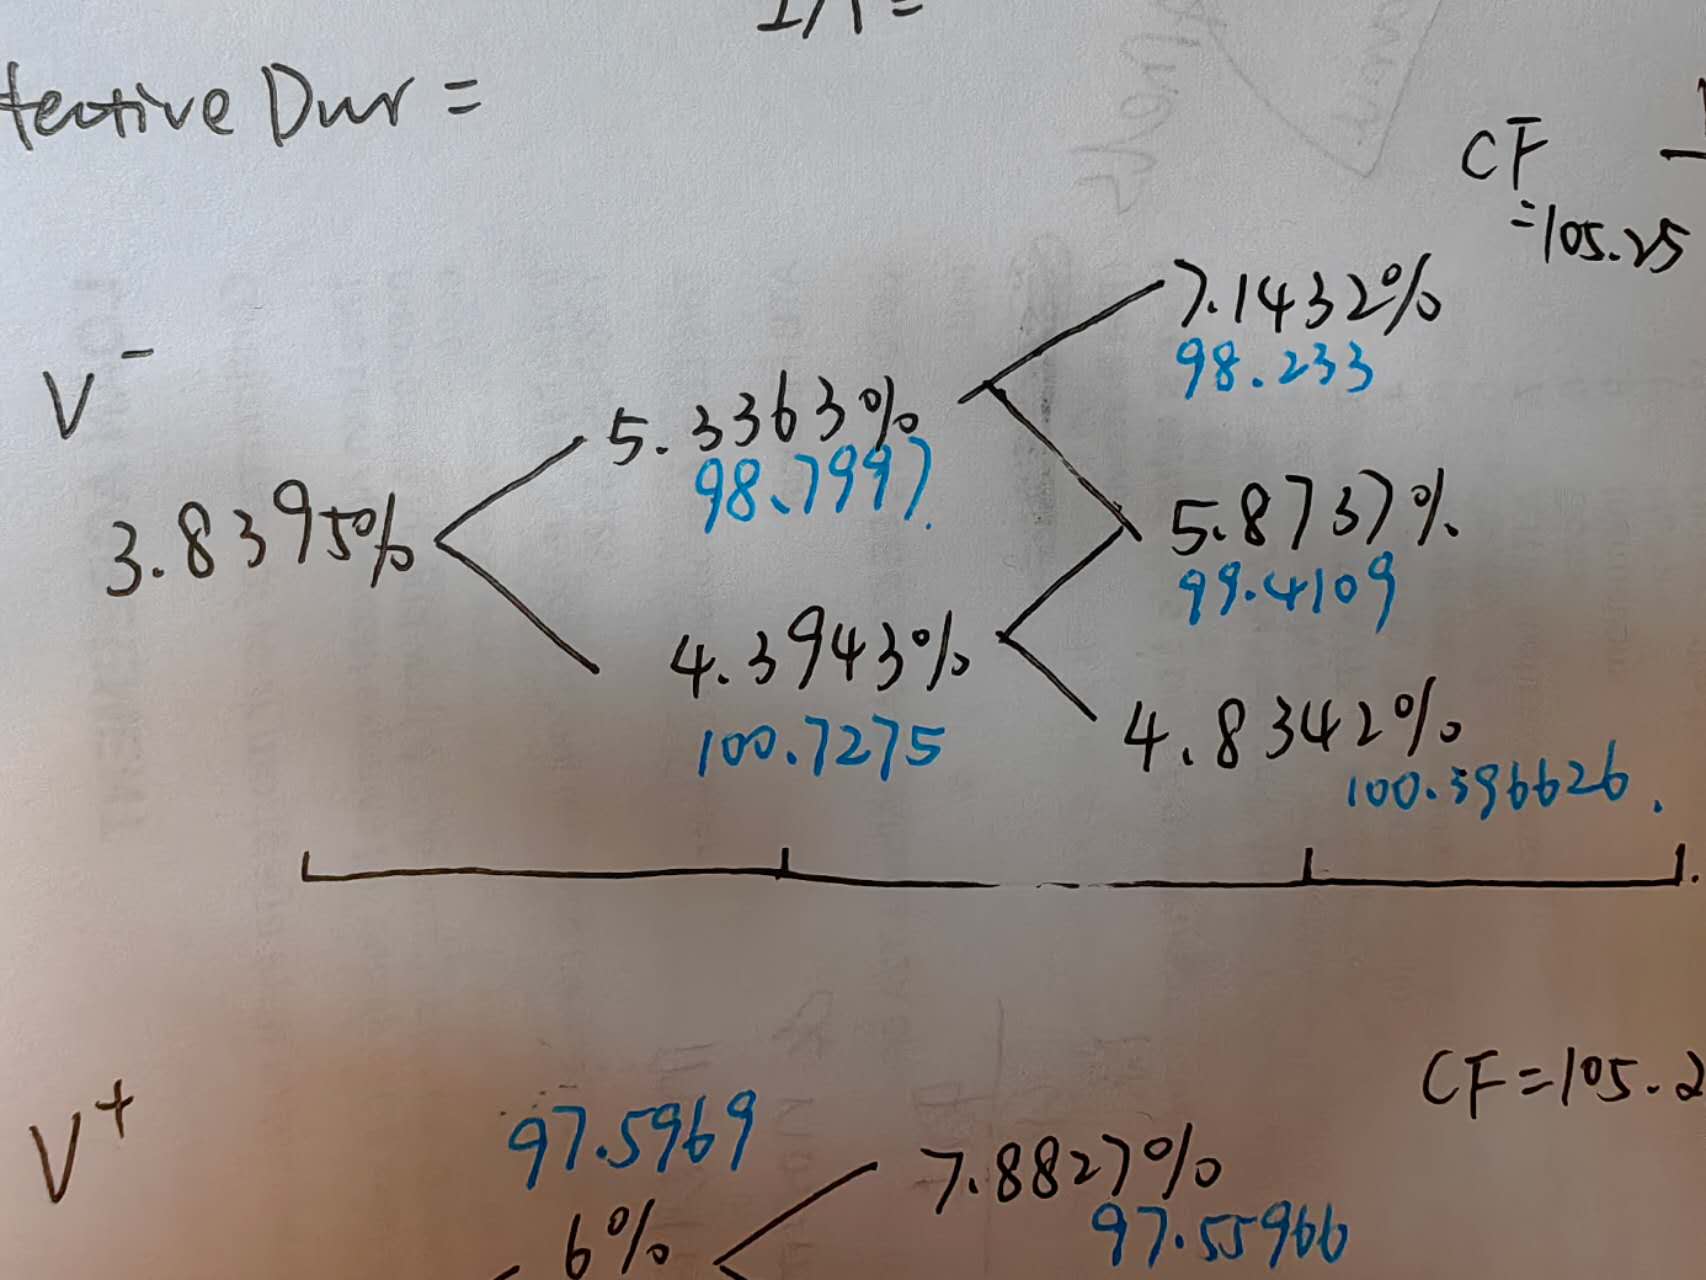 tective Dur =
CF
=105.25
7.1432%
98.233
V⁻
5.3363%
98.7997.
3.8395%
5.8737%
99.4109
4.3943%
100.7275
4.8342%
100.396626.
CF=105.2
V⁺
97.5969
7.8827%
97.55966
6%